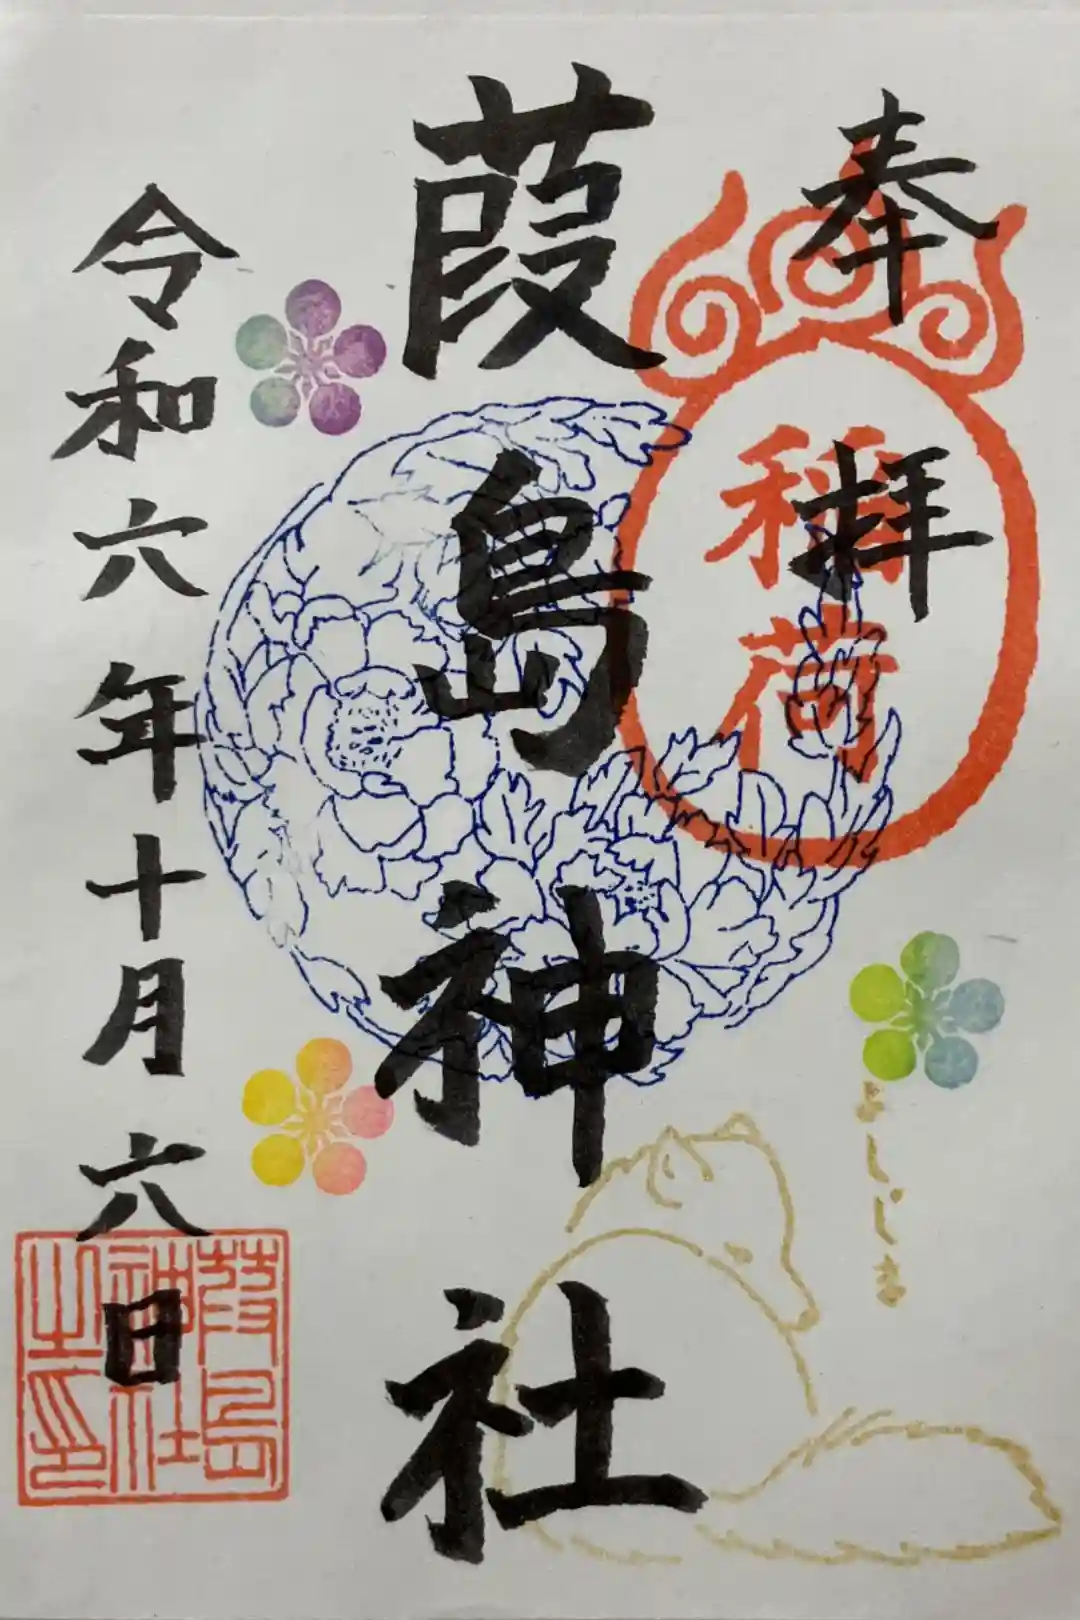 奉拝
稲荷
葭島神社
よしじま
令和六年十月六日
葭島神社之印